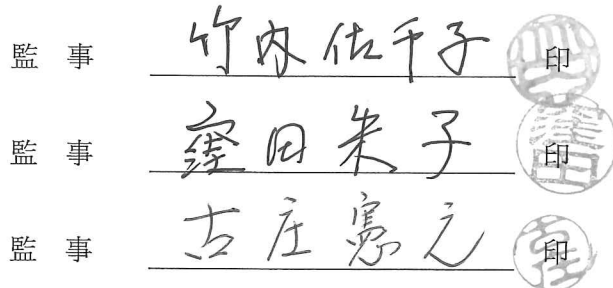 監事 竹内佐千子 印
監事 窪田朱子 印
監事 古庄憲之 印